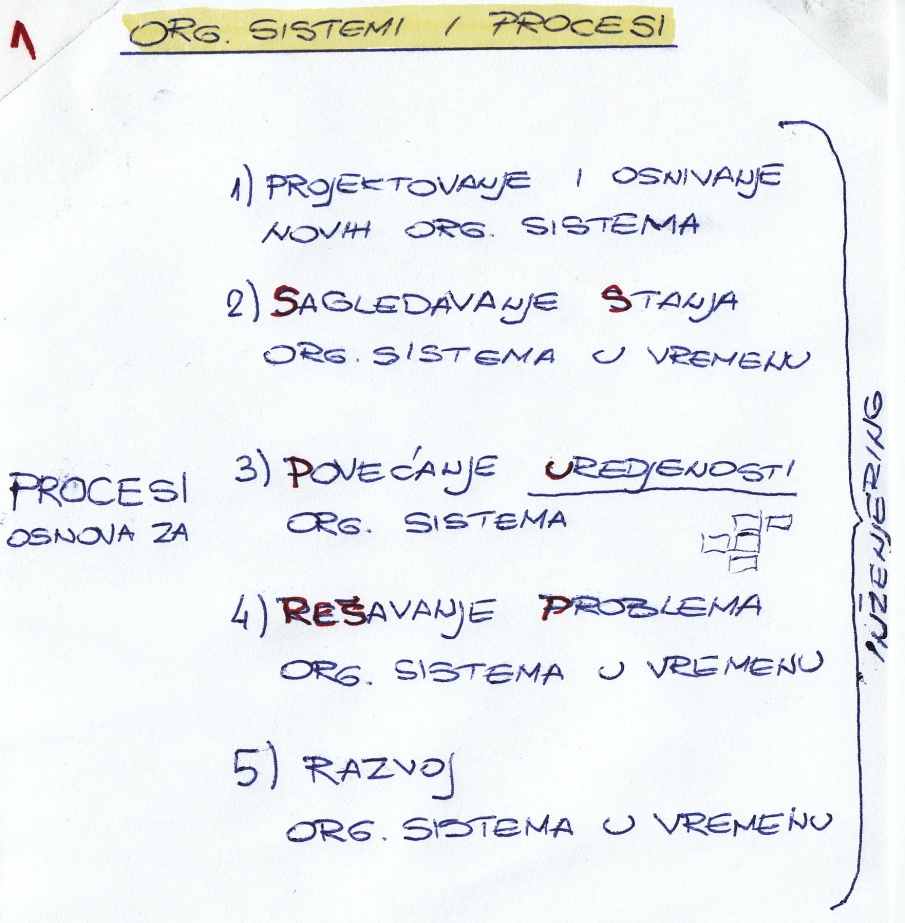 1
ORG. SISTEMI I PROCESI
1) PROJEKTOVANJE I OSNIVANJE
NOVIH ORG. SISTEMA
2) SAGLEDAVANJE STANJA
ORG. SISTEMA U VREMENU
PROCESI
OSNOVA ZA
3) POVEĆANJE UREDJENOSTI
ORG. SISTEMA
4) REŠAVANJE PROBLEMA
ORG. SISTEMA U VREMENU
5) RAZVOJ
ORG. SISTEMA U VREMENU
INŽENJERING